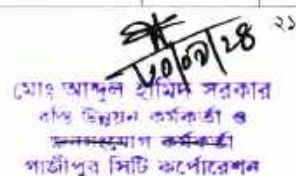 ২১
১০/০৭/২৪
মোঃ আব্দুল হামিদ সরকার
বস্তি উন্নয়ন কর্মকর্তা ও
জনসংযোগ কর্মকর্তা
গাজীপুর সিটি কর্পোরেশন